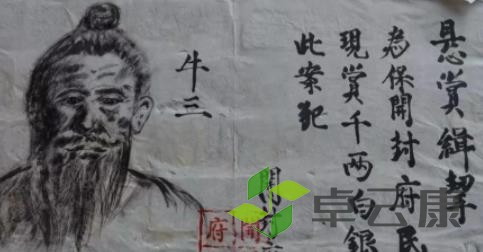 悬賞緝挈
為保開封府民
現賞千兩白銀
此案犯
牛三
卓云康